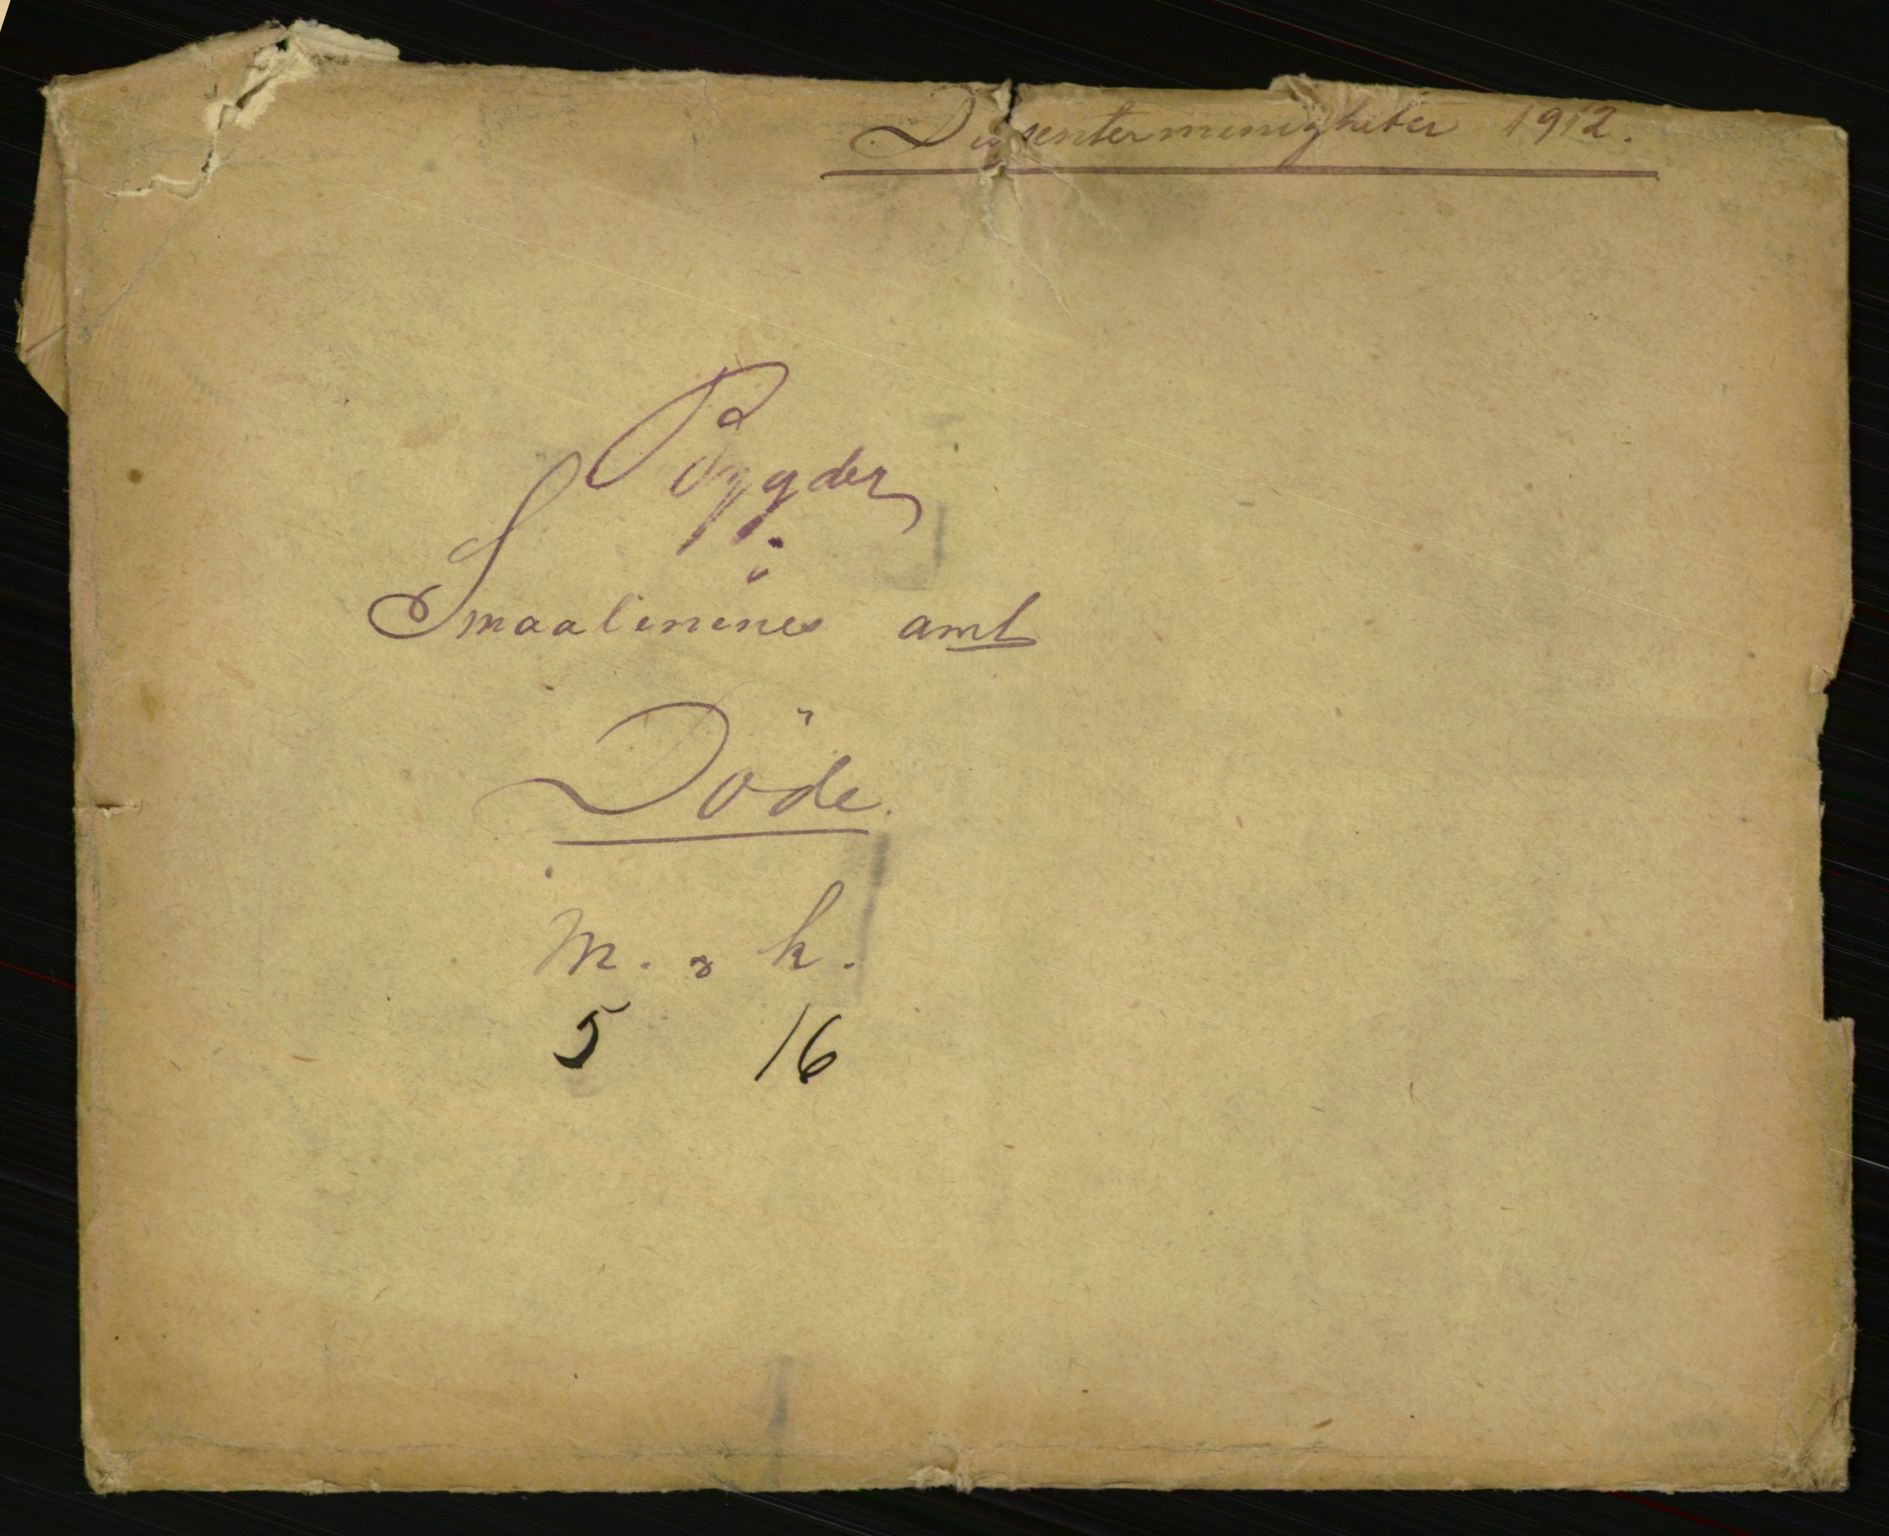 Dissentermenigheter 1912.
Bygder
Smaalenenes amt
Döde.
M. og k.
5 16